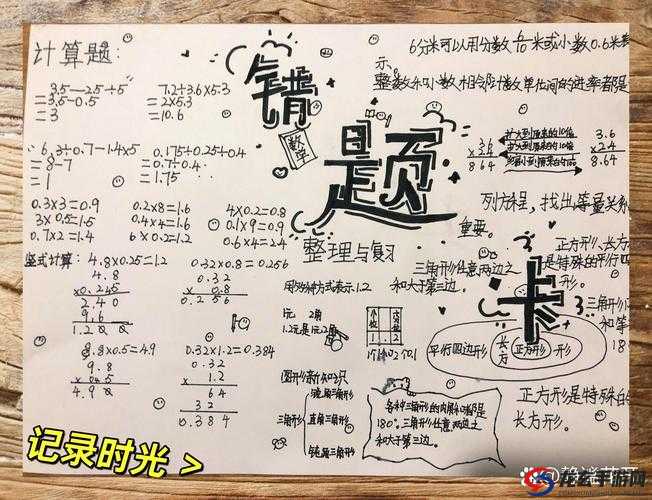 计算题:
3.5-2.5÷5
=3.5-0.5
=3
7.2÷3.6×5.3
=2×5.3
=10.6
6.3÷0.7-1.4×5
=8-7
=1
0.175÷0.25÷0.4
=0.7÷0.4
=1.75
0.3×3=0.9
0.2×8=1.6
4×0.2=0.8
3×0.5=1.5
0.4×4=1.6
0.1×9=0.9
0.7×2=1.4
6×0.2=1.2
0.6×4=2.4
竖式计算:
4.8×0.25=1.2
4.8
×0.245
2.40
9.6
1.200
0.32×0.8=0.256
0.32
×0.8
0.256
9.8×0.5=4.9
9.8
×0.5
4.90
0.32×1.2=0.384
0.32
1.2
64
32
0.384
错
题
卡
数学
整理与复习
6分米可以用分数
米或小数0.6米表
示。
整数和小数相邻计数单位间的进率都是
3.6
×2.4
8.64
扩大到原来的10倍
扩大到原来的10倍
3.6
×2.4
8.64
列方程,找出等量关系
重要。
三角形任意两边之
和大于第三边。
正方形、长方
是特殊的平行四
形。
用多种方式表示1.2
元 2角
1.2元是1元2角
个位
十分位
1.2
三角形
和等
18
平行四边形
长方
正方形
形
图形新知识
三角形
锐角三角形
直角三角形
钝角三角形
各种三角形的内角和都是
180°。三角形任意两边之
和大于第三边。
正方形是特殊的
长方形。
记录时光 >
龙幺手游网